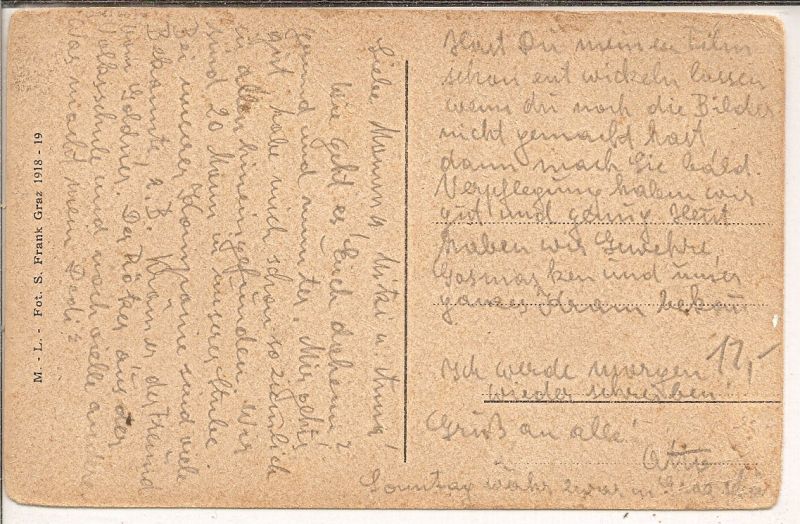 Liebe Mamma, Mitzi u. Anna!
Wie geht es Euch daheim?
gesund und munter. Mir geht's
gut, habe mich schon so ziemlich
in alles hineingefunden. Wir
sind 20 Mann in unserer Stube
Bei unserer Kompanie sind viele
Bekannte, z.B. der Freund
vom Goldner. Der aus der
Volksschule und noch vielle andere
Was macht mein Dedi?
Hast Du meinen Film
schon entwickeln lassen
wenn du noch die Bilder
nicht gemacht hast
dann mach Sie bald.
Verpflegung haben wir
gut und genug Heut
haben wir Gewehre,
Gasmasken und unser
ganzes Kram bekom
Ich werde morgen
wieder schreiben!
12,-
Gruß an alle!
Sonntag
M. - L. - Fot. S. Frank Graz 1918 - 19